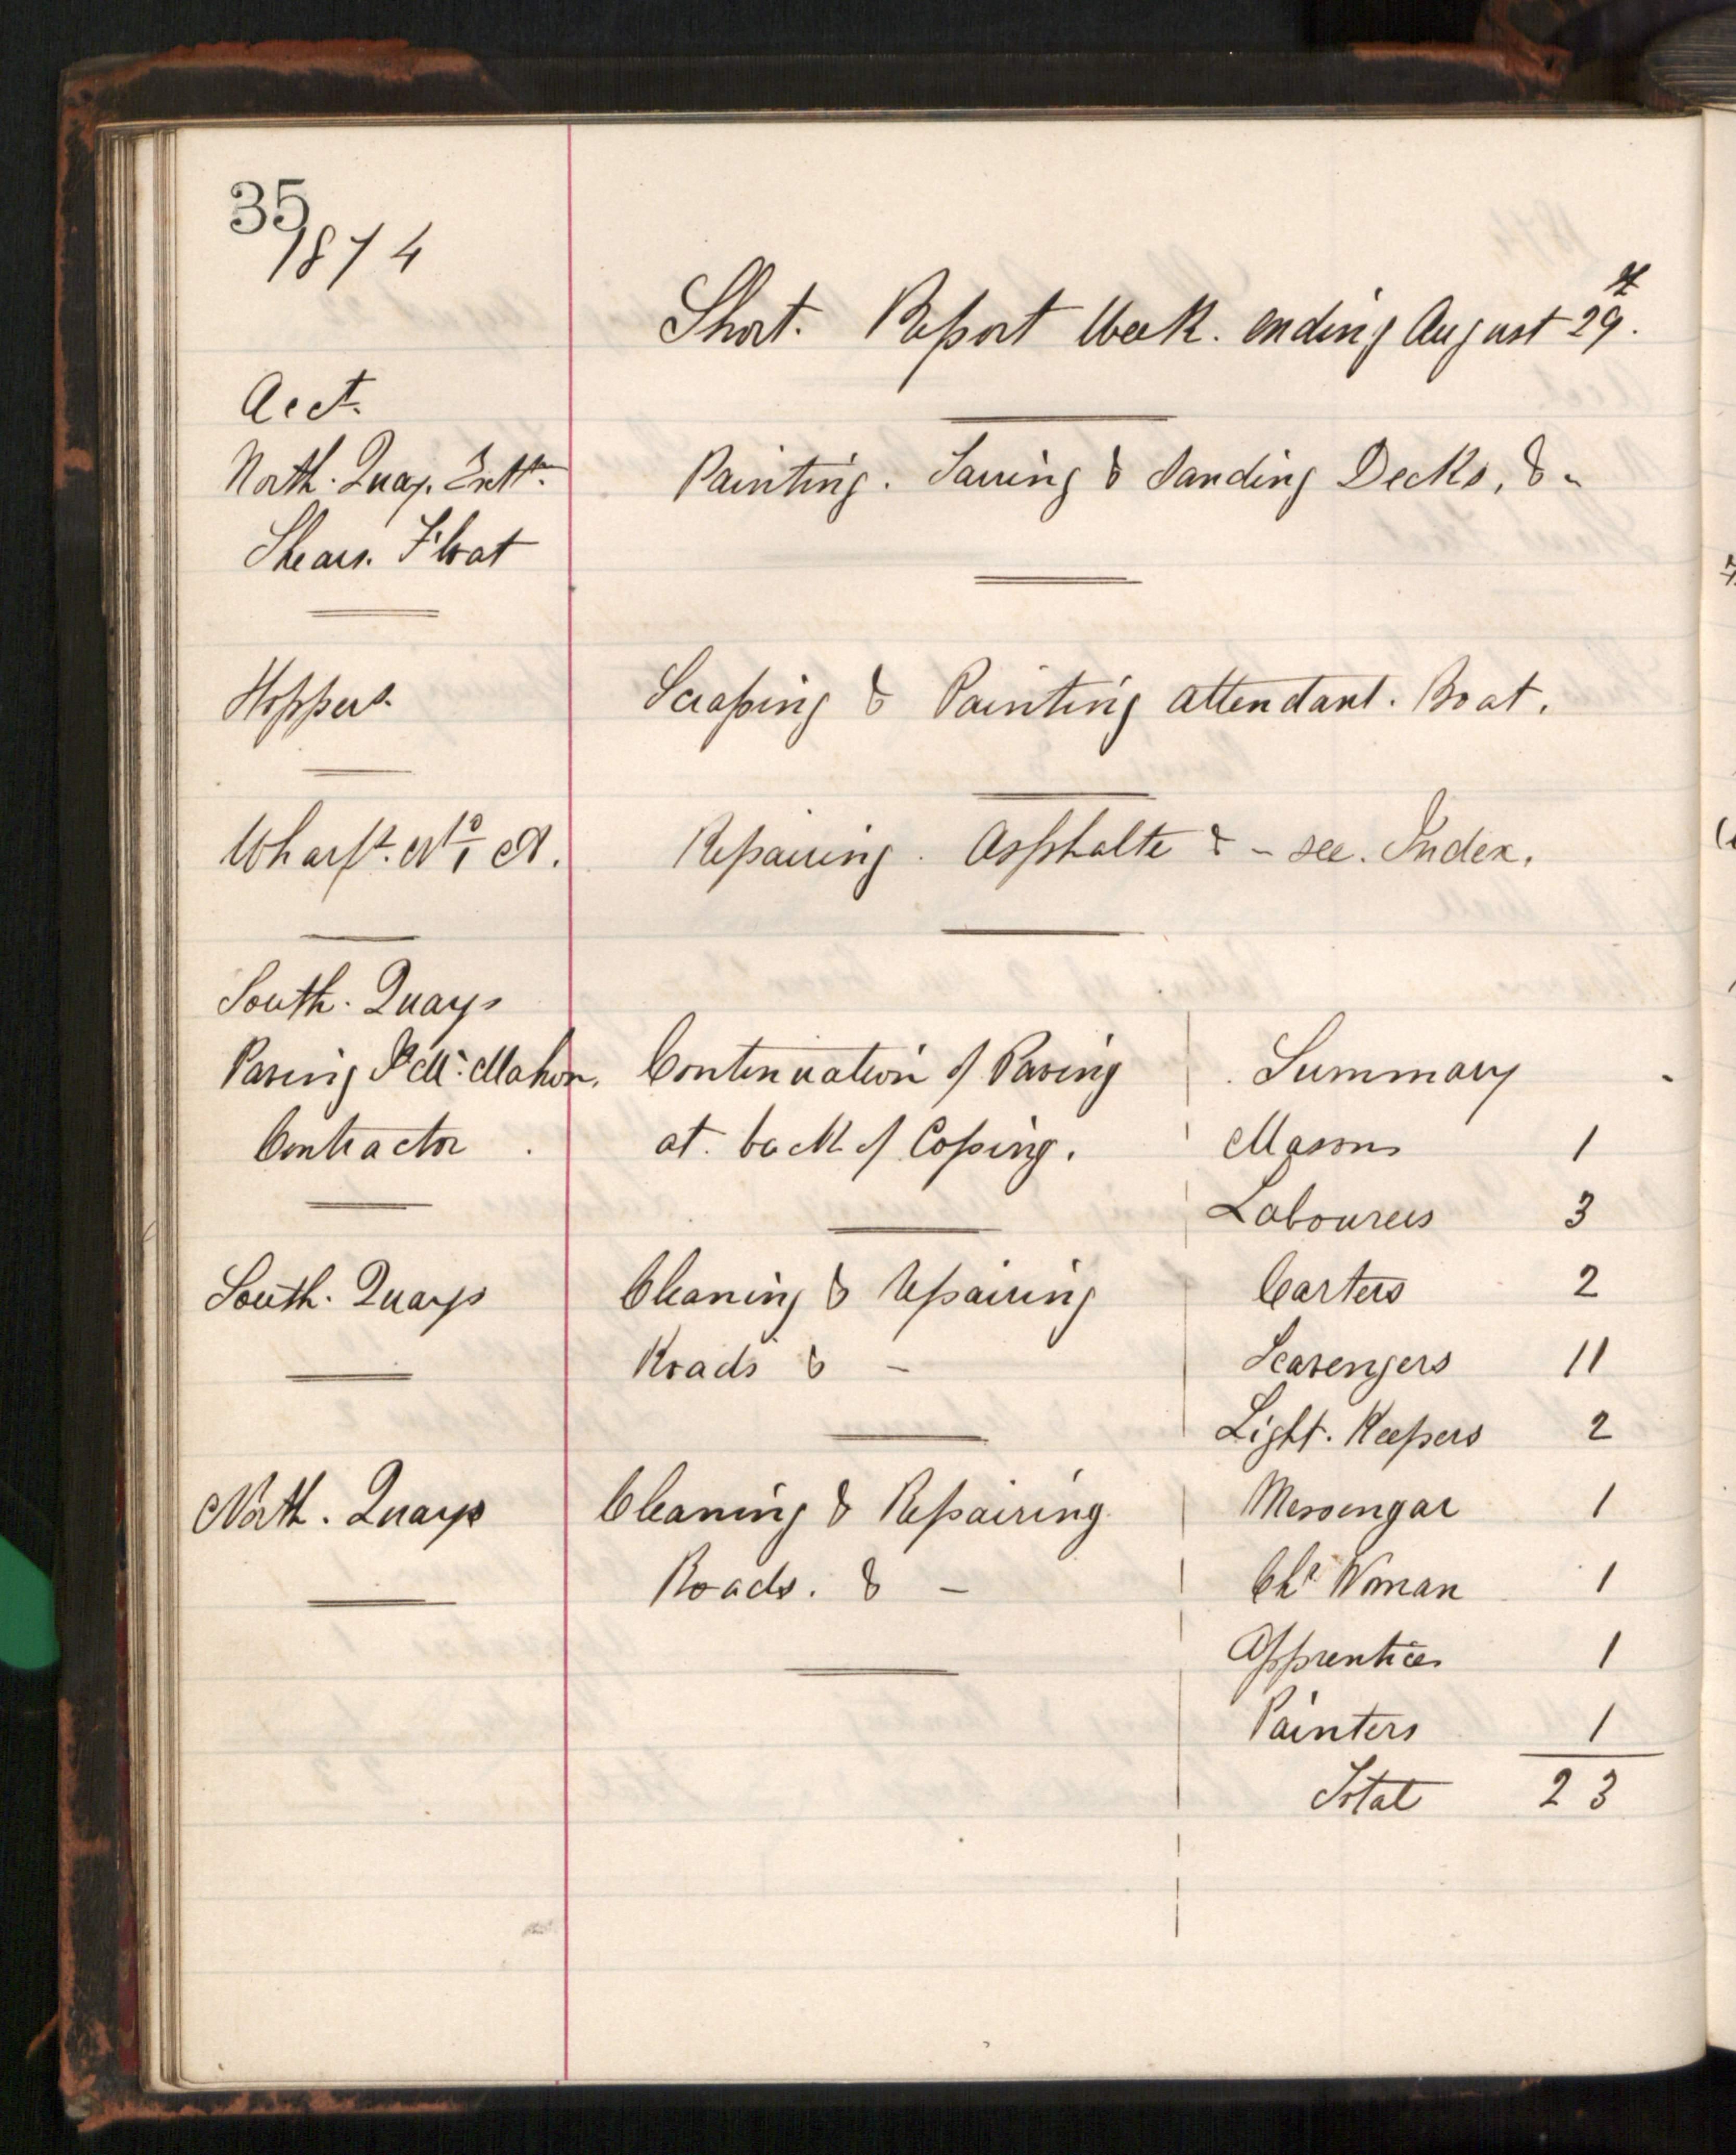 35
1874
Short. Report Week. ending August 29th.
Acct.
North. Quay. Extn.
Painting. Tarring & Sanding Decks, & -
Shears. Float
Hoppers.
Scraping & Painting attendant. Boat.
Wharf. No 1 A.
Repairing. Asphalte & - see. Index.
South. Quays
Paving P McMahon.
Contractor
Continuation of Paving
at. back of Coping.
South. Quays
Cleaning & Repairing
Roads & -
North. Quays
Cleaning & Repairing
Roads. & -
Summary
Masons 1
Labourers 3
Carters 2
Scavengers 11
Light. Keepers 2
Messengar 1
Chr Woman 1
Apprentices 1
Painters 1
Total 23